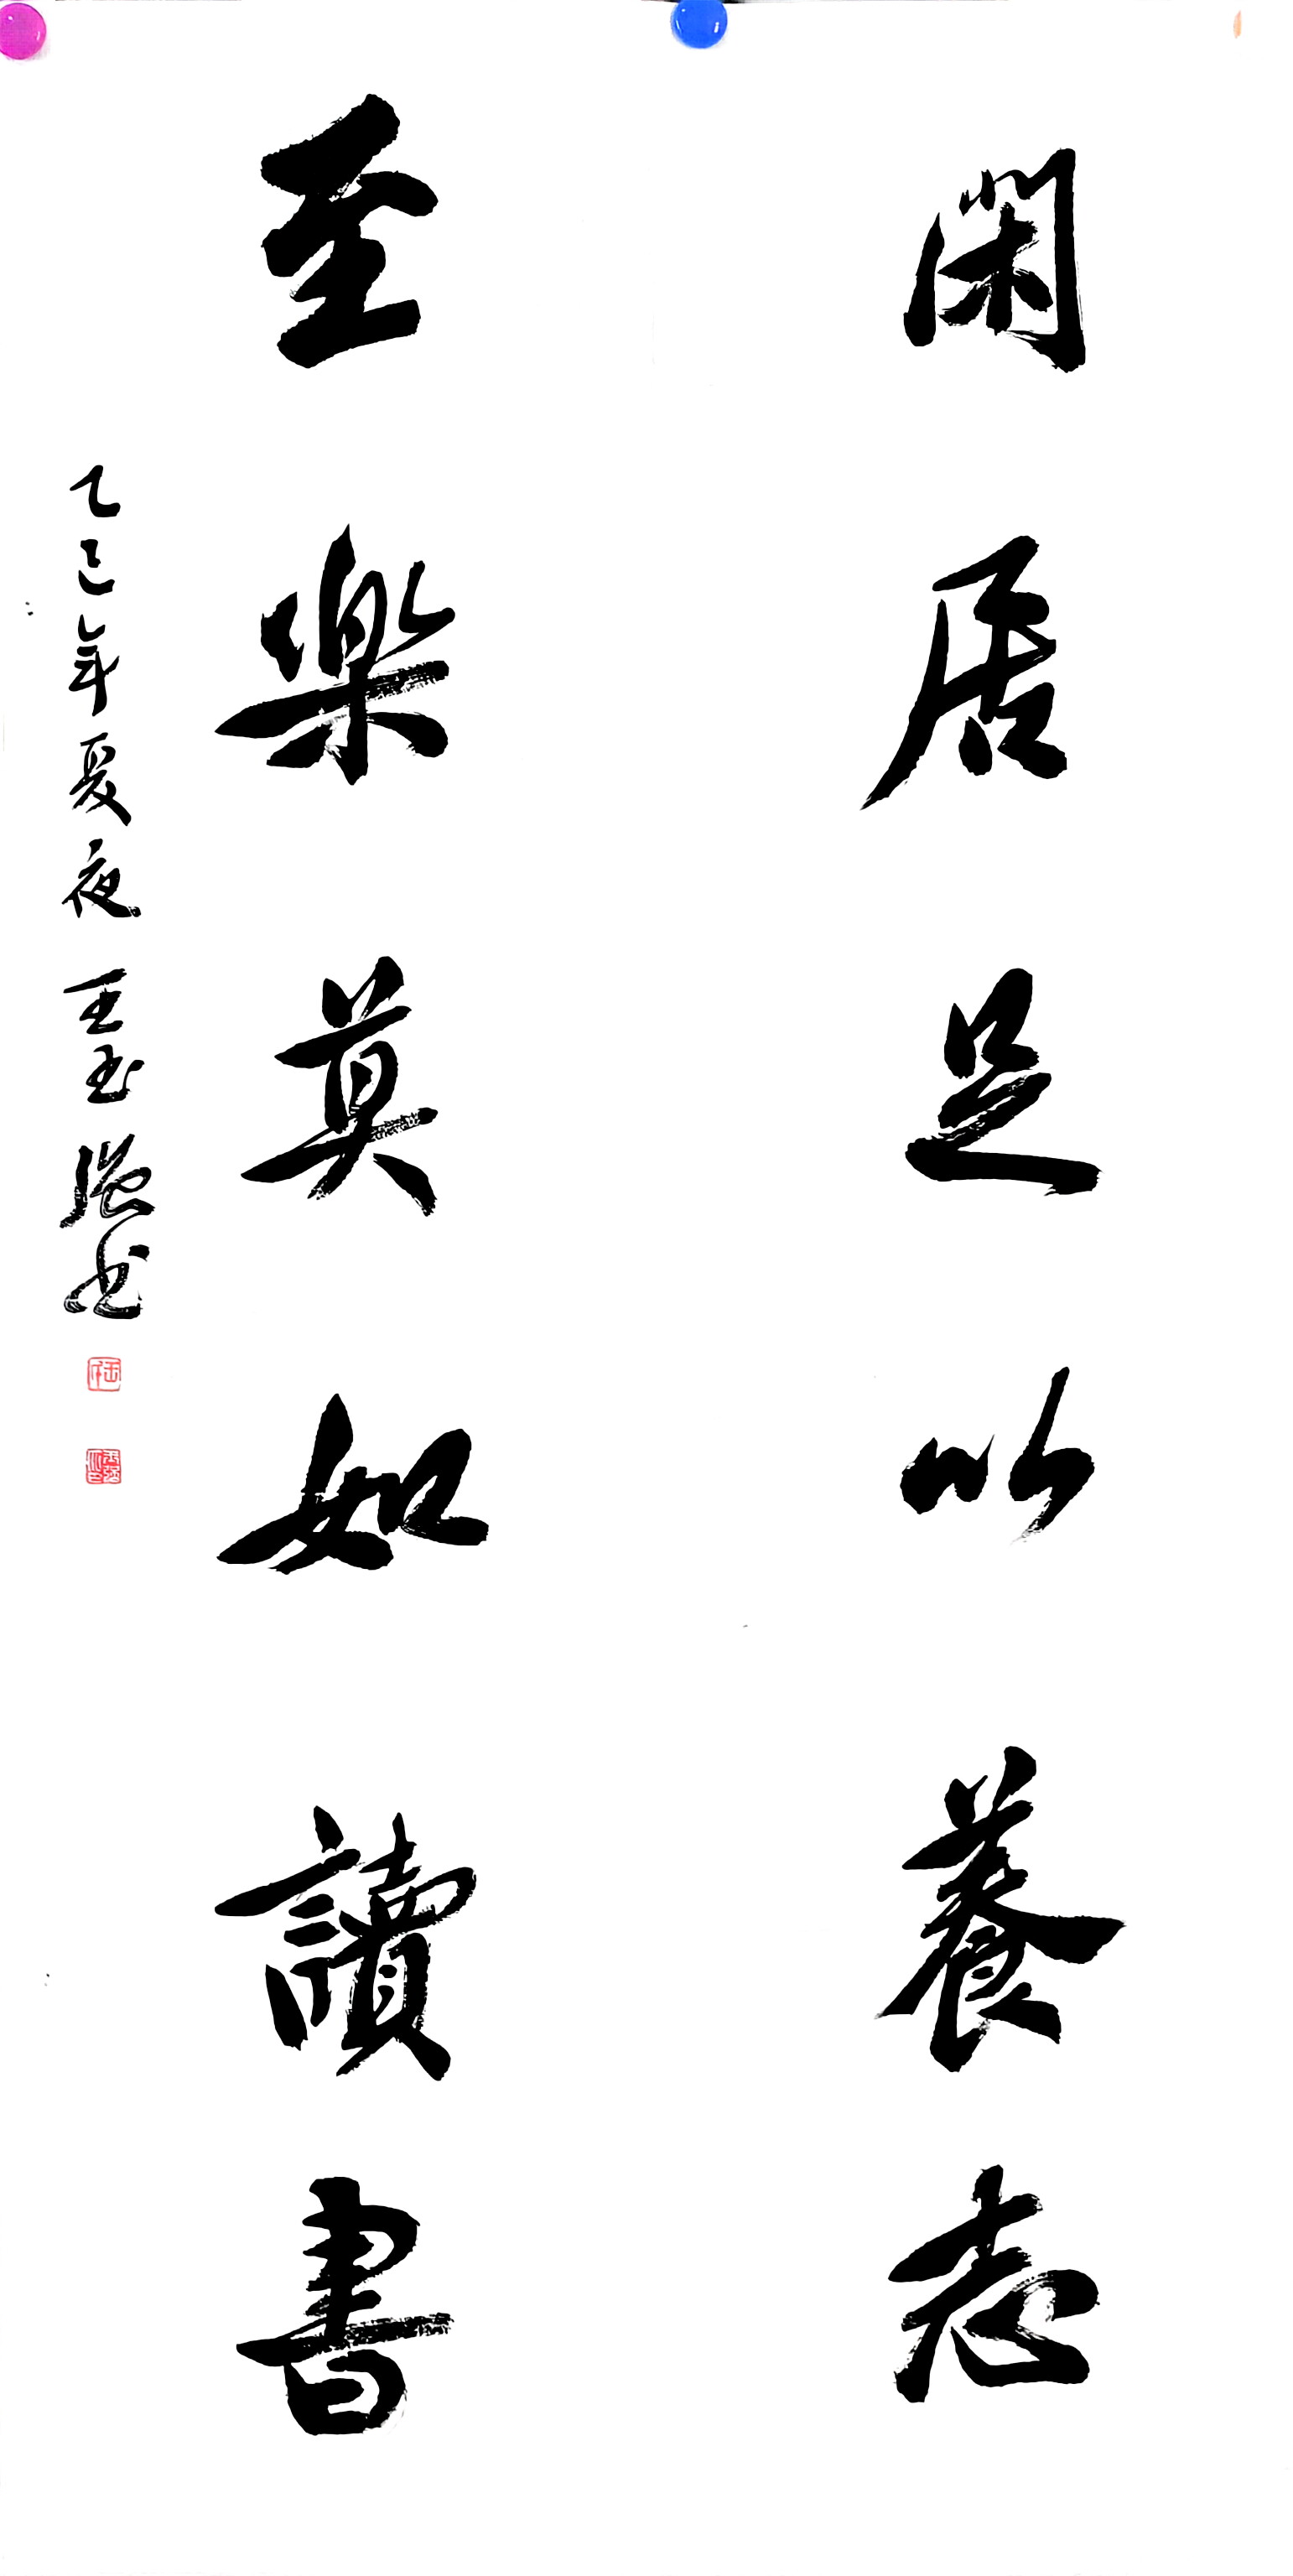 閑居足以養志
至樂莫如讀書
乙巳年夏夜王玉強书